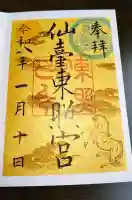 奉拝
仙臺東照宮
令和八年
一月十日